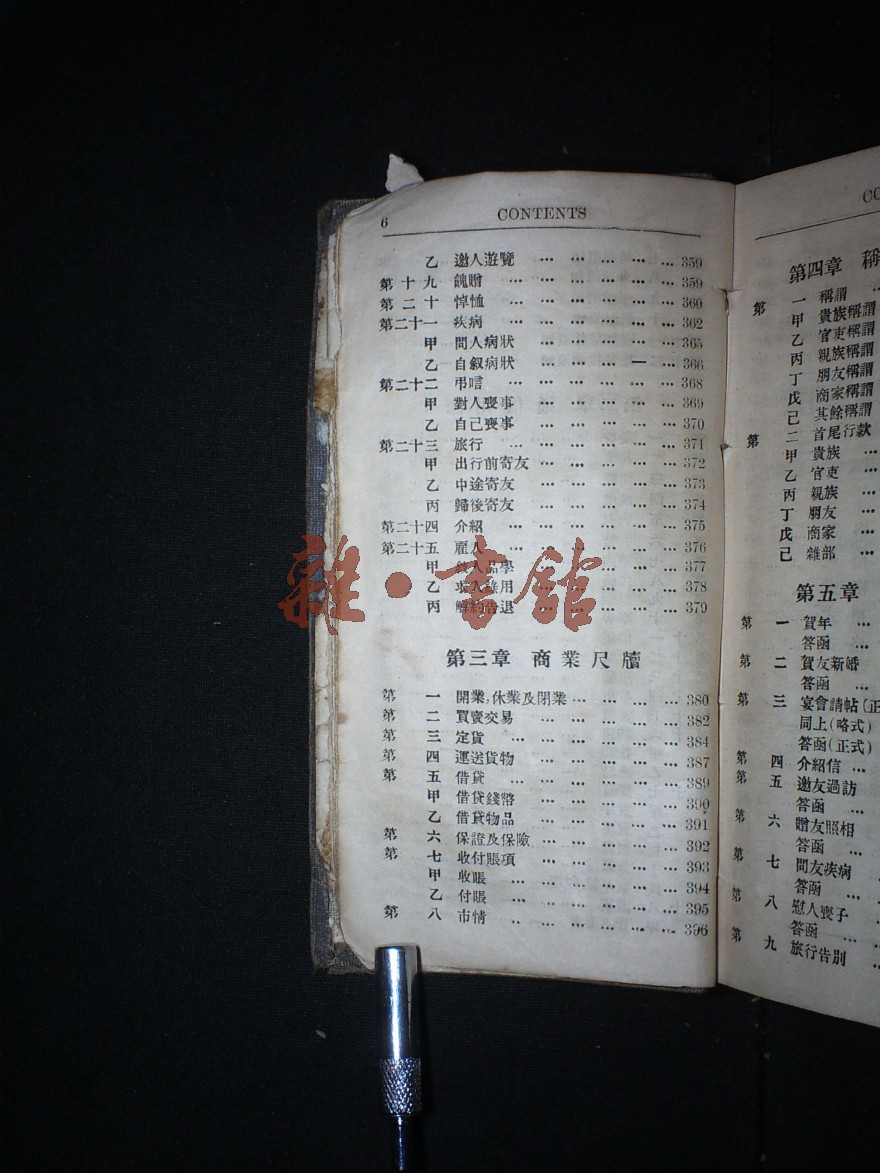 6 CONTENTS
乙 邀人遊覽 … … … … … 359
第十九 餽贈 … … … … … … 359
第二十 悼恤 … … … … … … 360
第二十一 疾病 … … … … … … 362
甲 問人病狀 … … … … … 365
乙 自叙病狀 … … … 一 … 366
第二十二 弔唁 … … … … … … 368
甲 對人喪事 … … … … … 369
乙 自己喪事 … … … … … 370
第二十三 旅行 … … … … … … 371
甲 出行前寄友 … … … … … 372
乙 中途寄友 … … … … … 373
丙 歸後寄友 … … … … … 374
第二十四 介紹 … … … … … … 375
第二十五 雇人 … … … … … … 376
甲 人品學 … … … … … 377
乙 求人錄用 … … … … … 378
丙 解約告退 … … … … … 379
第三章 商業尺牘
第一 開業,休業及閉業 … … … … 380
第二 買賣交易 … … … … … 382
第三 定貨 … … … … … … 384
第四 運送貨物 … … … … … 387
第五 借貸 … … … … … … 389
甲 借貸錢幣 … … … … … 390
乙 借貸物品 … … … … … 391
第六 保證及保險 … … … … … 392
第七 收付賬項 … … … … … 393
甲 收賬 … … … … … … 394
乙 付賬 … … … … … … 395
第八 市情 .. … … … … … 396
第四章 稱
第一 稱謂 …
甲 貴族稱謂
乙 官吏稱謂
丙 親族稱謂
丁 朋友稱謂
戊 商家稱謂
己 其餘稱謂
第二 首尾行款
甲 貴族 …
乙 官吏 …
丙 親族 …
丁 朋友 …
戊 商家 …
己 雜部 …
第五章
第一 賀年 …
答函 …
第二 賀友新婚
答函 …
第三 宴會請帖(正
同上(略式)
答函(正式)
第四 介紹信 …
第五 邀友過訪
答函 …
第六 贈友照相
答函 …
第七 問友疾病
答函 …
第八 慰人喪子
答函 …
第九 旅行告別
雜·書館